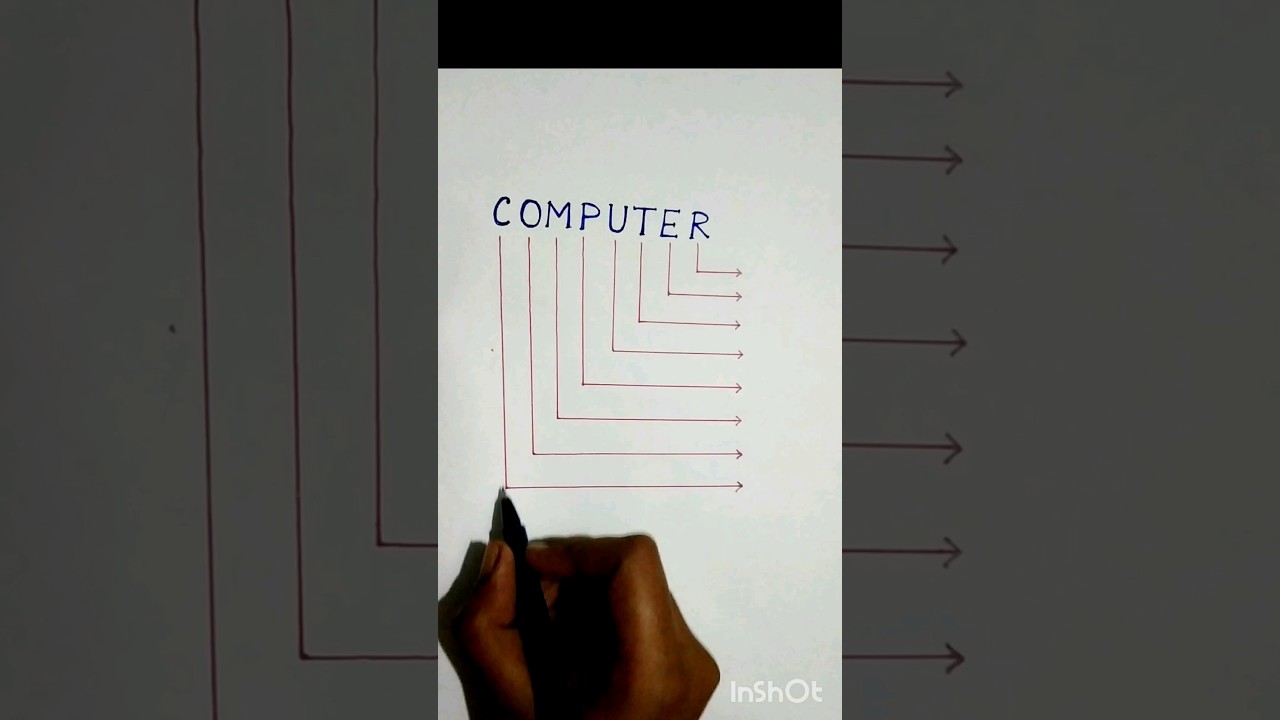 COMPUTER
InShOt